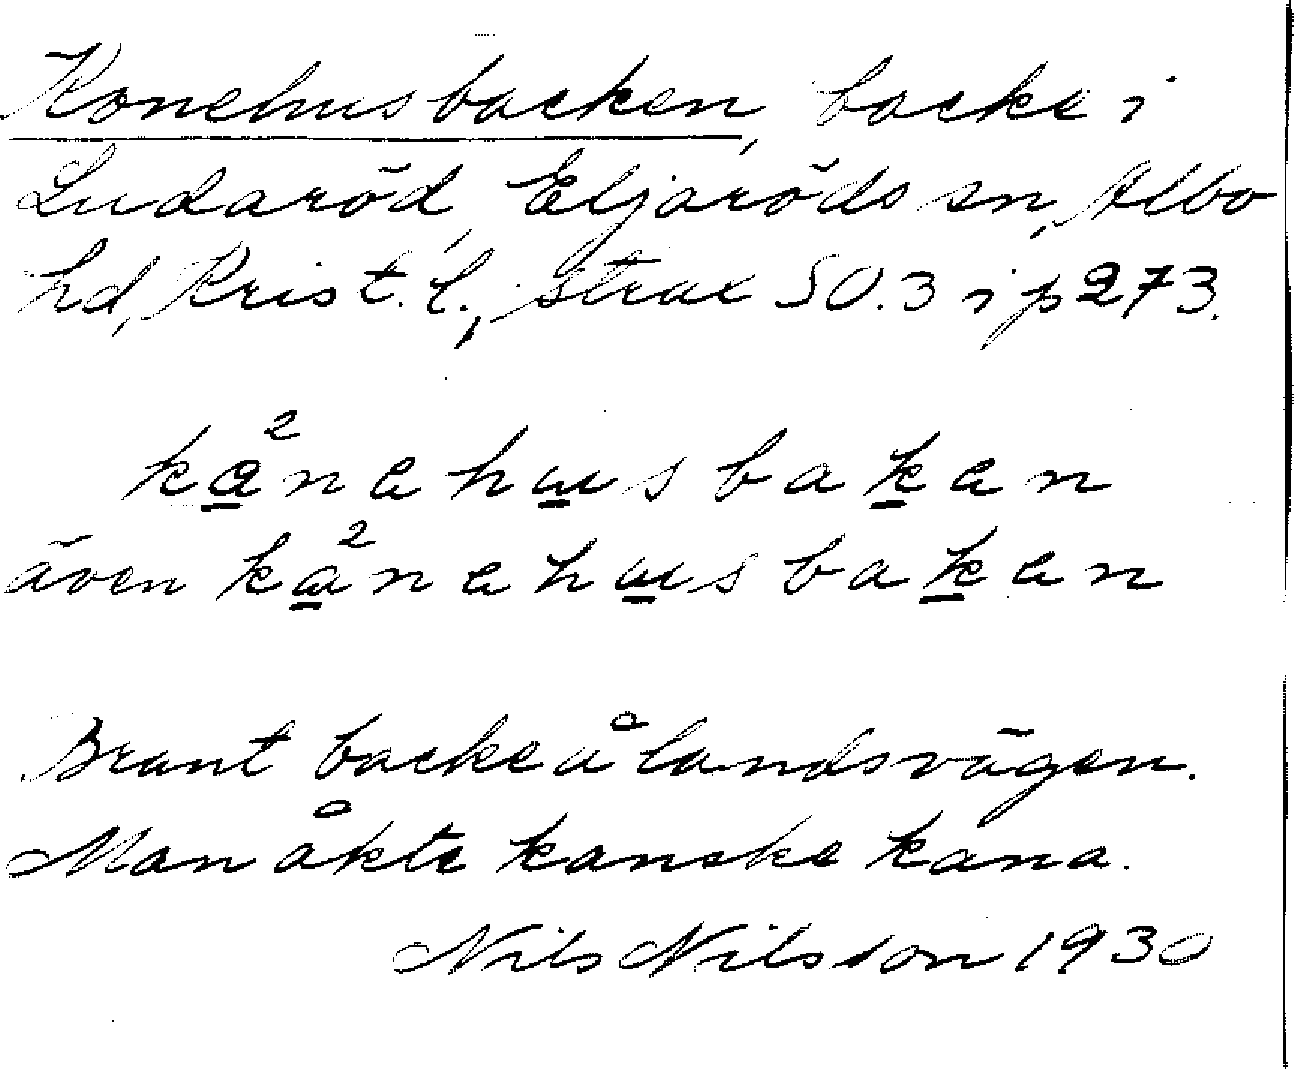 Konehusbacken, backe i
Ludaröd, Eljaröds sn, Albo
hd, Krist. l., strax SO. 3 i p 273.
kånehusbaken
även kånehusbaken
Brant backe å landsvägen.
Man åkte kanske kana.
Nils Nilsson 1930